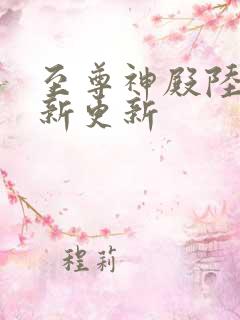 至尊神殿陆
新更新
程莉